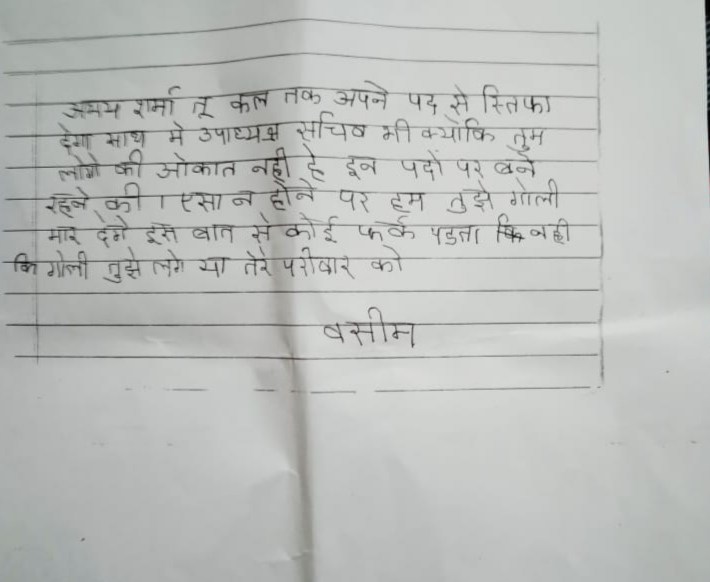 अभय शर्मा तू कल तक अपने पद से स्तिफा
देगा साथ मे उपाध्यक्ष सचिव भी क्योकि तुम
लोगो की ओकात नही है इन पदों पर बने
रहने की । एसा न होने पर हम तुझे गोली
मार देगे इस बात से कोई फर्क पडता नही
कि गोली तुझे लगे या तेरे परीवार को
वसीम